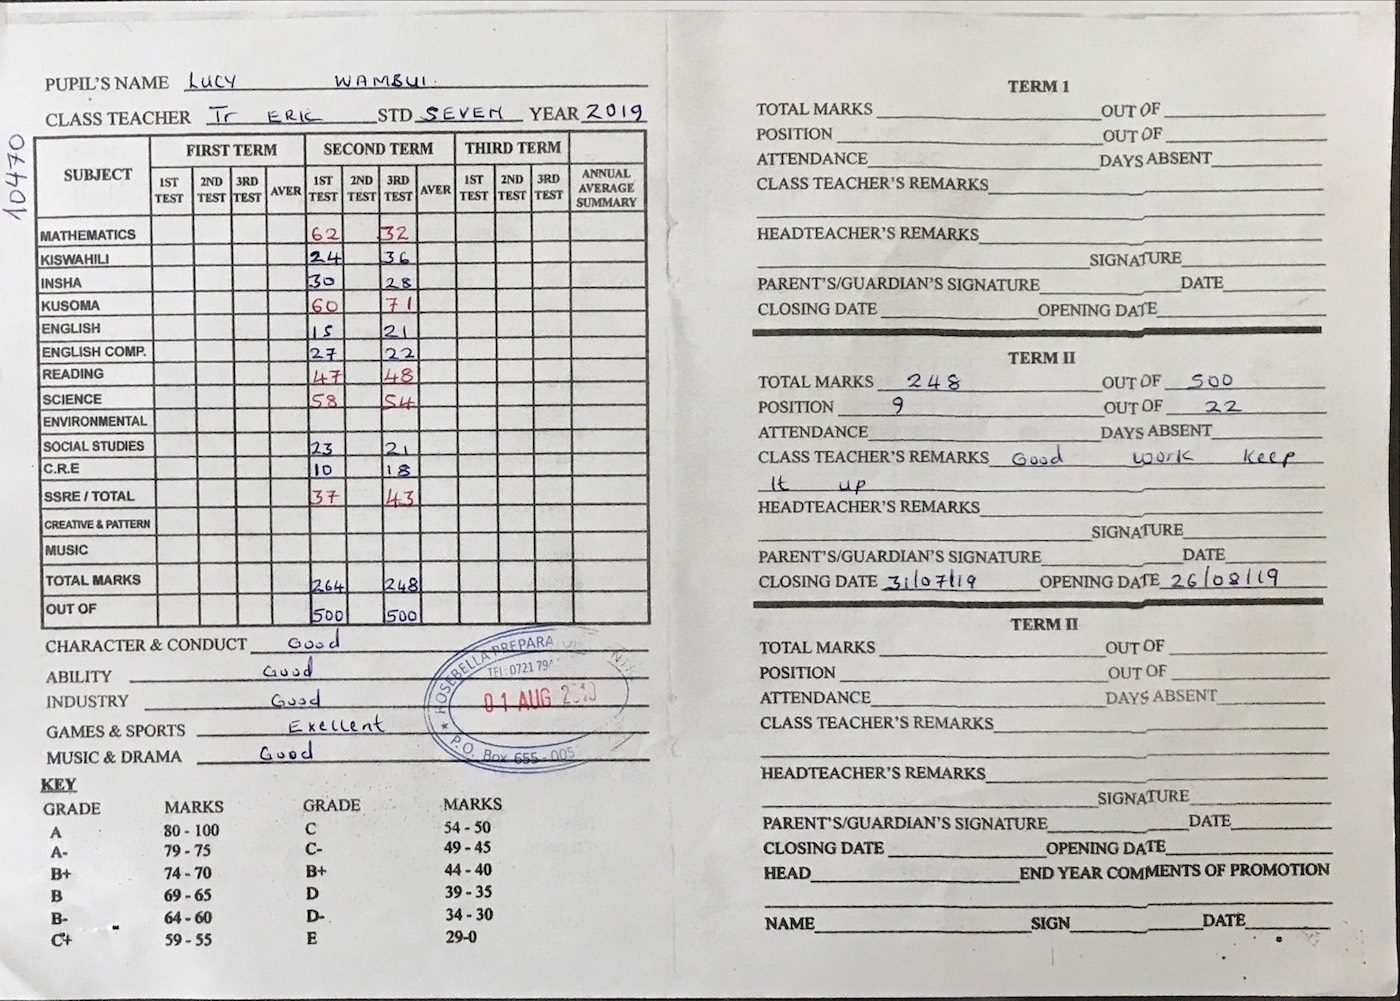 PUPIL'S NAME LUCY WAMBUI
CLASS TEACHER Tr ERIC STD SEVEN YEAR 2019
10470
SUBJECT FIRST TERM SECOND TERM THIRD TERM
1ST TEST 2ND TEST 3RD TEST AVER 1ST TEST 2ND TEST 3RD TEST AVER 1ST TEST 2ND TEST 3RD TEST ANNUAL AVERAGE SUMMARY
MATHEMATICS 62 32
KISWAHILI 24 36
INSHA 30 28
KUSOMA 60 71
ENGLISH 15 21
ENGLISH COMP. 27 22
READING 47 48
SCIENCE 58 54
ENVIRONMENTAL
SOCIAL STUDIES 23 21
C.R.E 10 18
SSRE / TOTAL 37 43
CREATIVE & PATTERN
MUSIC
TOTAL MARKS 264 248
OUT OF 500 500
CHARACTER & CONDUCT Good
ABILITY Good
INDUSTRY Good
GAMES & SPORTS Exellent
MUSIC & DRAMA Good
ROSEBELLA PREPARA
TEL: 0721 79
01 AUG
P.O. Box 655 - 005
KEY
GRADE MARKS GRADE MARKS
A 80 - 100 C 54 - 50
A- 79 - 75 C- 49 - 45
B+ 74 - 70 B+ 44 - 40
B 69 - 65 D 39 - 35
B- 64 - 60 D- 34 - 30
C+ 59 - 55 E 29-0
TERM I
TOTAL MARKS OUT OF
POSITION OUT OF
ATTENDANCE DAYS ABSENT
CLASS TEACHER'S REMARKS
HEADTEACHER'S REMARKS
SIGNATURE
PARENT'S/GUARDIAN'S SIGNATURE DATE
CLOSING DATE OPENING DATE
TERM II
TOTAL MARKS 248 OUT OF 500
POSITION 9 OUT OF 22
ATTENDANCE DAYS ABSENT
CLASS TEACHER'S REMARKS Good work keep
It up
HEADTEACHER'S REMARKS
SIGNATURE
PARENT'S/GUARDIAN'S SIGNATURE DATE
CLOSING DATE 31/07/19 OPENING DATE 26/08/19
TERM II
TOTAL MARKS OUT OF
POSITION OUT OF
ATTENDANCE DAYS ABSENT
CLASS TEACHER'S REMARKS
HEADTEACHER'S REMARKS
SIGNATURE
PARENT'S/GUARDIAN'S SIGNATURE DATE
CLOSING DATE OPENING DATE
HEAD END YEAR COMMENTS OF PROMOTION
NAME SIGN DATE